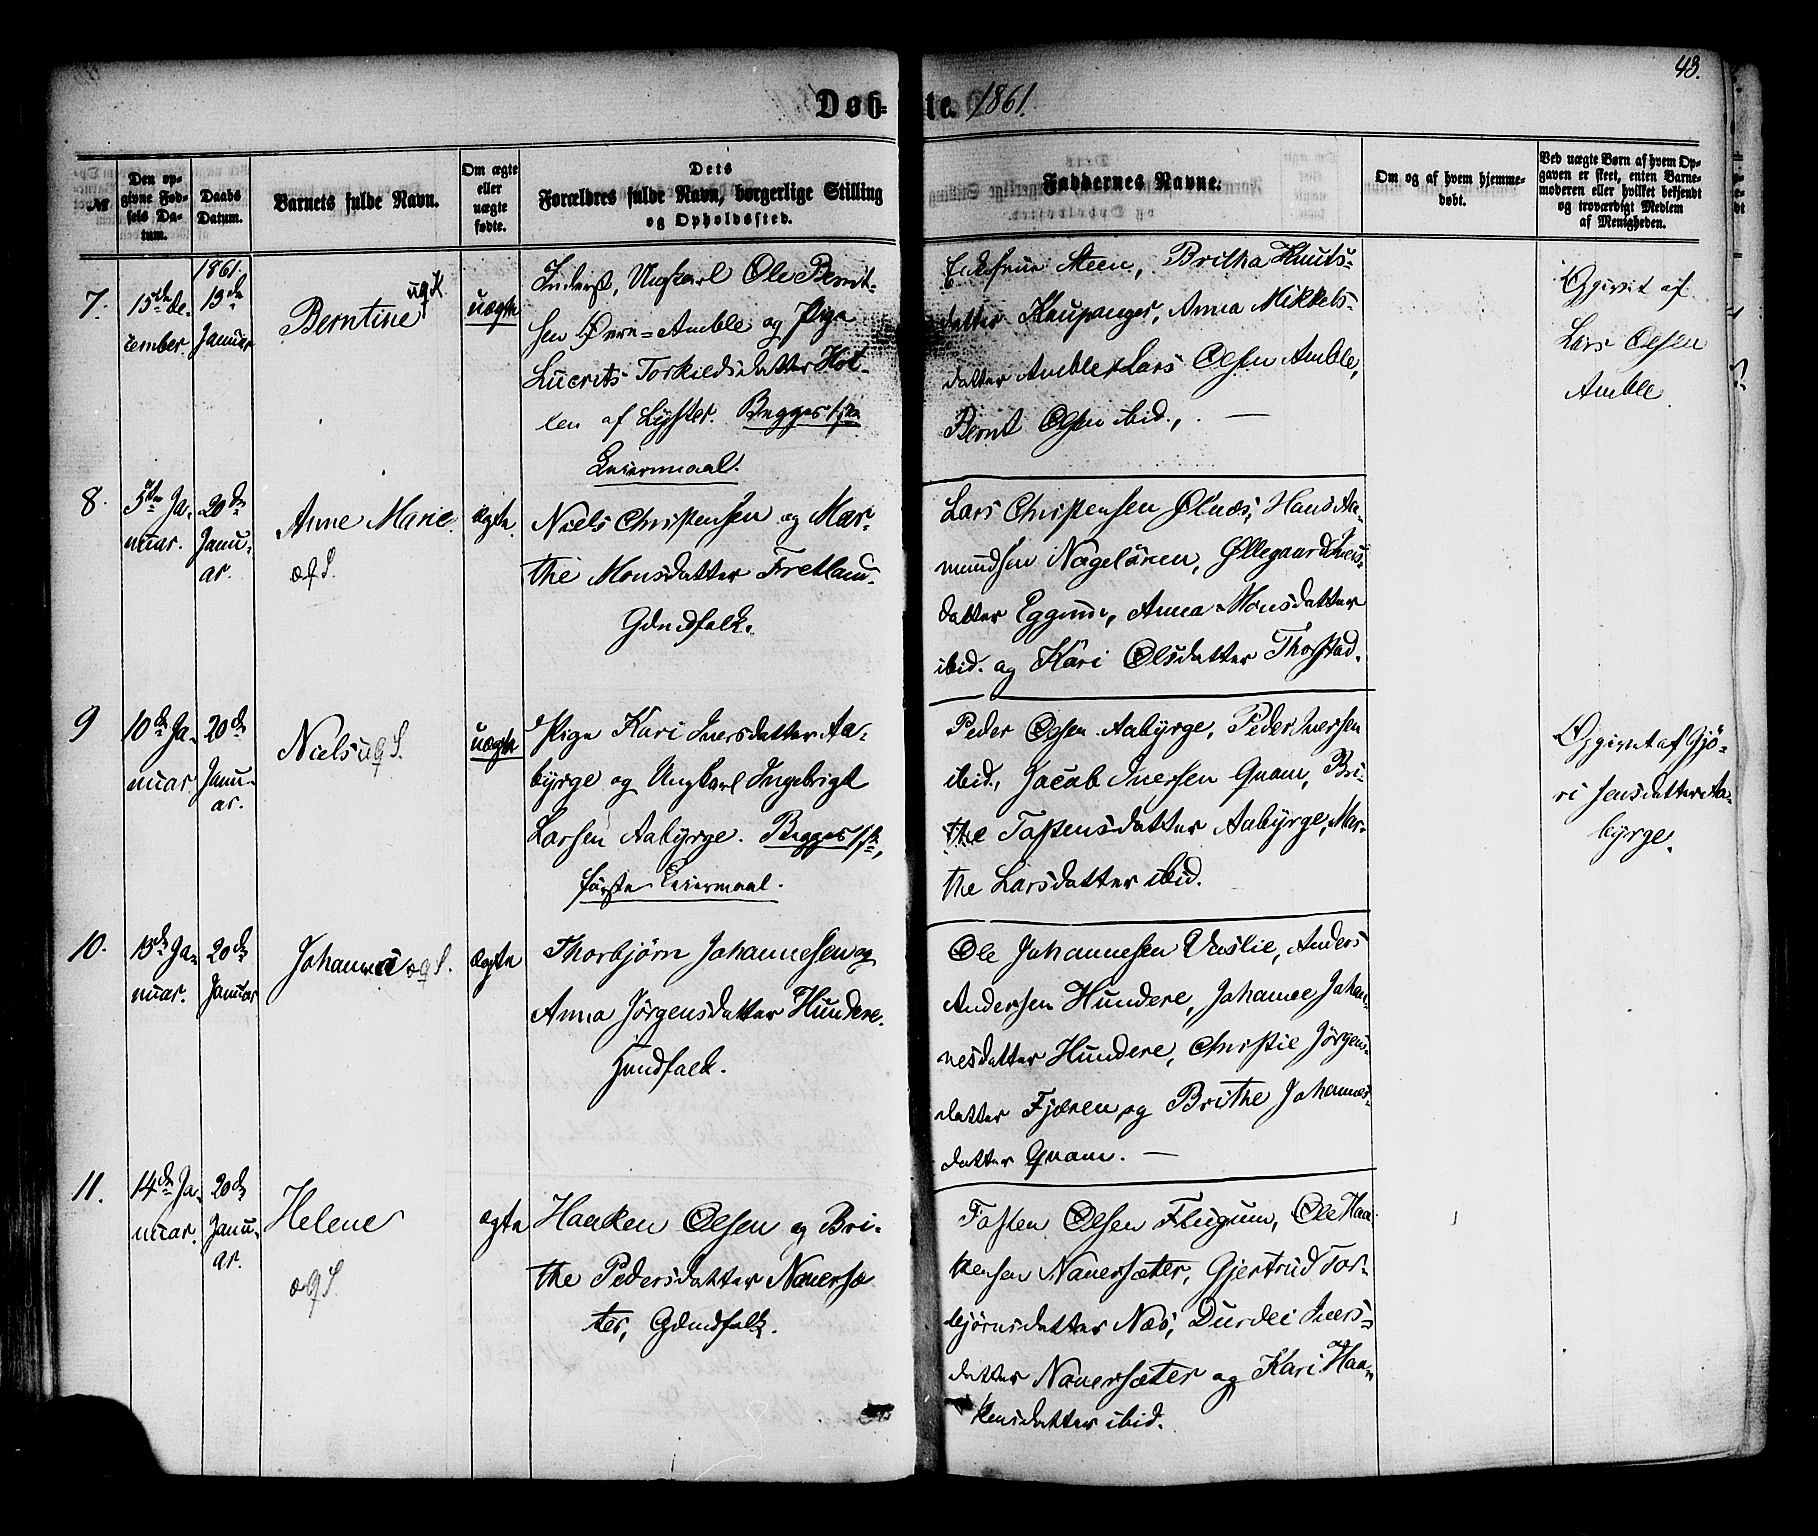 43.
Døbte. 1861.
№
Den opgivne Fødsels Datum.
Daabs Datum.
Barnets fulde Navn.
Om ægte eller uægte fødte.
Dets Forældres fulde Navn, borgerlige Stilling og Opholdssted.
Faddernes Navne.
Om og af hvem hjemmedøbt.
Ved uægte Børn af hvem Opgaven er skeet, enten Barnemoderen eller hvilket bekjendt og troværdigt Medlem af Menigheden.
7.
15de De-
cember.
1861.
13de
Januar
Berntine
uqK.
uægte
Inderst, Ungkarl Ole Bernt-
sen Øvre=Amble og Pige
Lucrets Torkildsdatter Hol-
len af Lyster. Begges 1ste
Leiermaal.
Enkefrue Steen, Britha Knuts-
datter Kaupanger, Anna Mikkels-
datter Amble, Lars Olsen Amble,
Bernt Olsen ibid., —
Opgivet af
Lars Olsen
Amble.
8.
5te Ja-
nuar.
20de
Janu-
ar.
Anne Marie
æqS.
ægte.
Niels Christensen og Mar-
the Monsdatter Fretland.
Gdmdfolk.
Lars Christensen Ølnæs, Hans Aa-
mundsen Nagelören, Øllegaard Ivers-
datter Eggum, Anna Monsdatter
ibid. og Kari Olsdatter Thorstad.
9
10de Ja-
nuar
20de
Janu-
ar.
Niels uqS.
uægte
Pige Kari Iversdatter Aa-
byrge og Ungkarl Ingebrigt
Larsen Aabyrge. Begges
første Leiermaal.
Peder Olsen Aabyrge, Peder Iversen
ibid., Jacob Iversen Qvam, Bri-
the Tostensdatter Aabyrge, Mar-
the Larsdatter ibid.
Opgivet af Gjö-
ri Jensdatter Aa-
byrge.
10.
13de Ja-
nuar.
20de
Januar
Johanna æqS.
ægte
Thorbjørn Johannesen og
Anna Jörgensdatter Hundere.
Huusfolk.
Ole Johannesen Veslie, Anders
Andersen Hundere, Johanne Johan-
nesdatter Hundere, Christie Jörgens-
datter Fjæren og Brithe Johannes-
datter Qvam. —
11.
14de Ja-
nuar.
20de
Janu-
ar.
Helene
æqS.
ægte
Haaken Olsen og Bri-
the Pedersdatter Naversæ
ter, Gdmdfolk.
Tosten Olsen Flugum, Ole Haa-
kensen Naversæter, Gjertrud Tor-
björnsdatter Næs, Durdei Ivers-
datter Naversæter og Kari Haa-
kensdatter ibid.